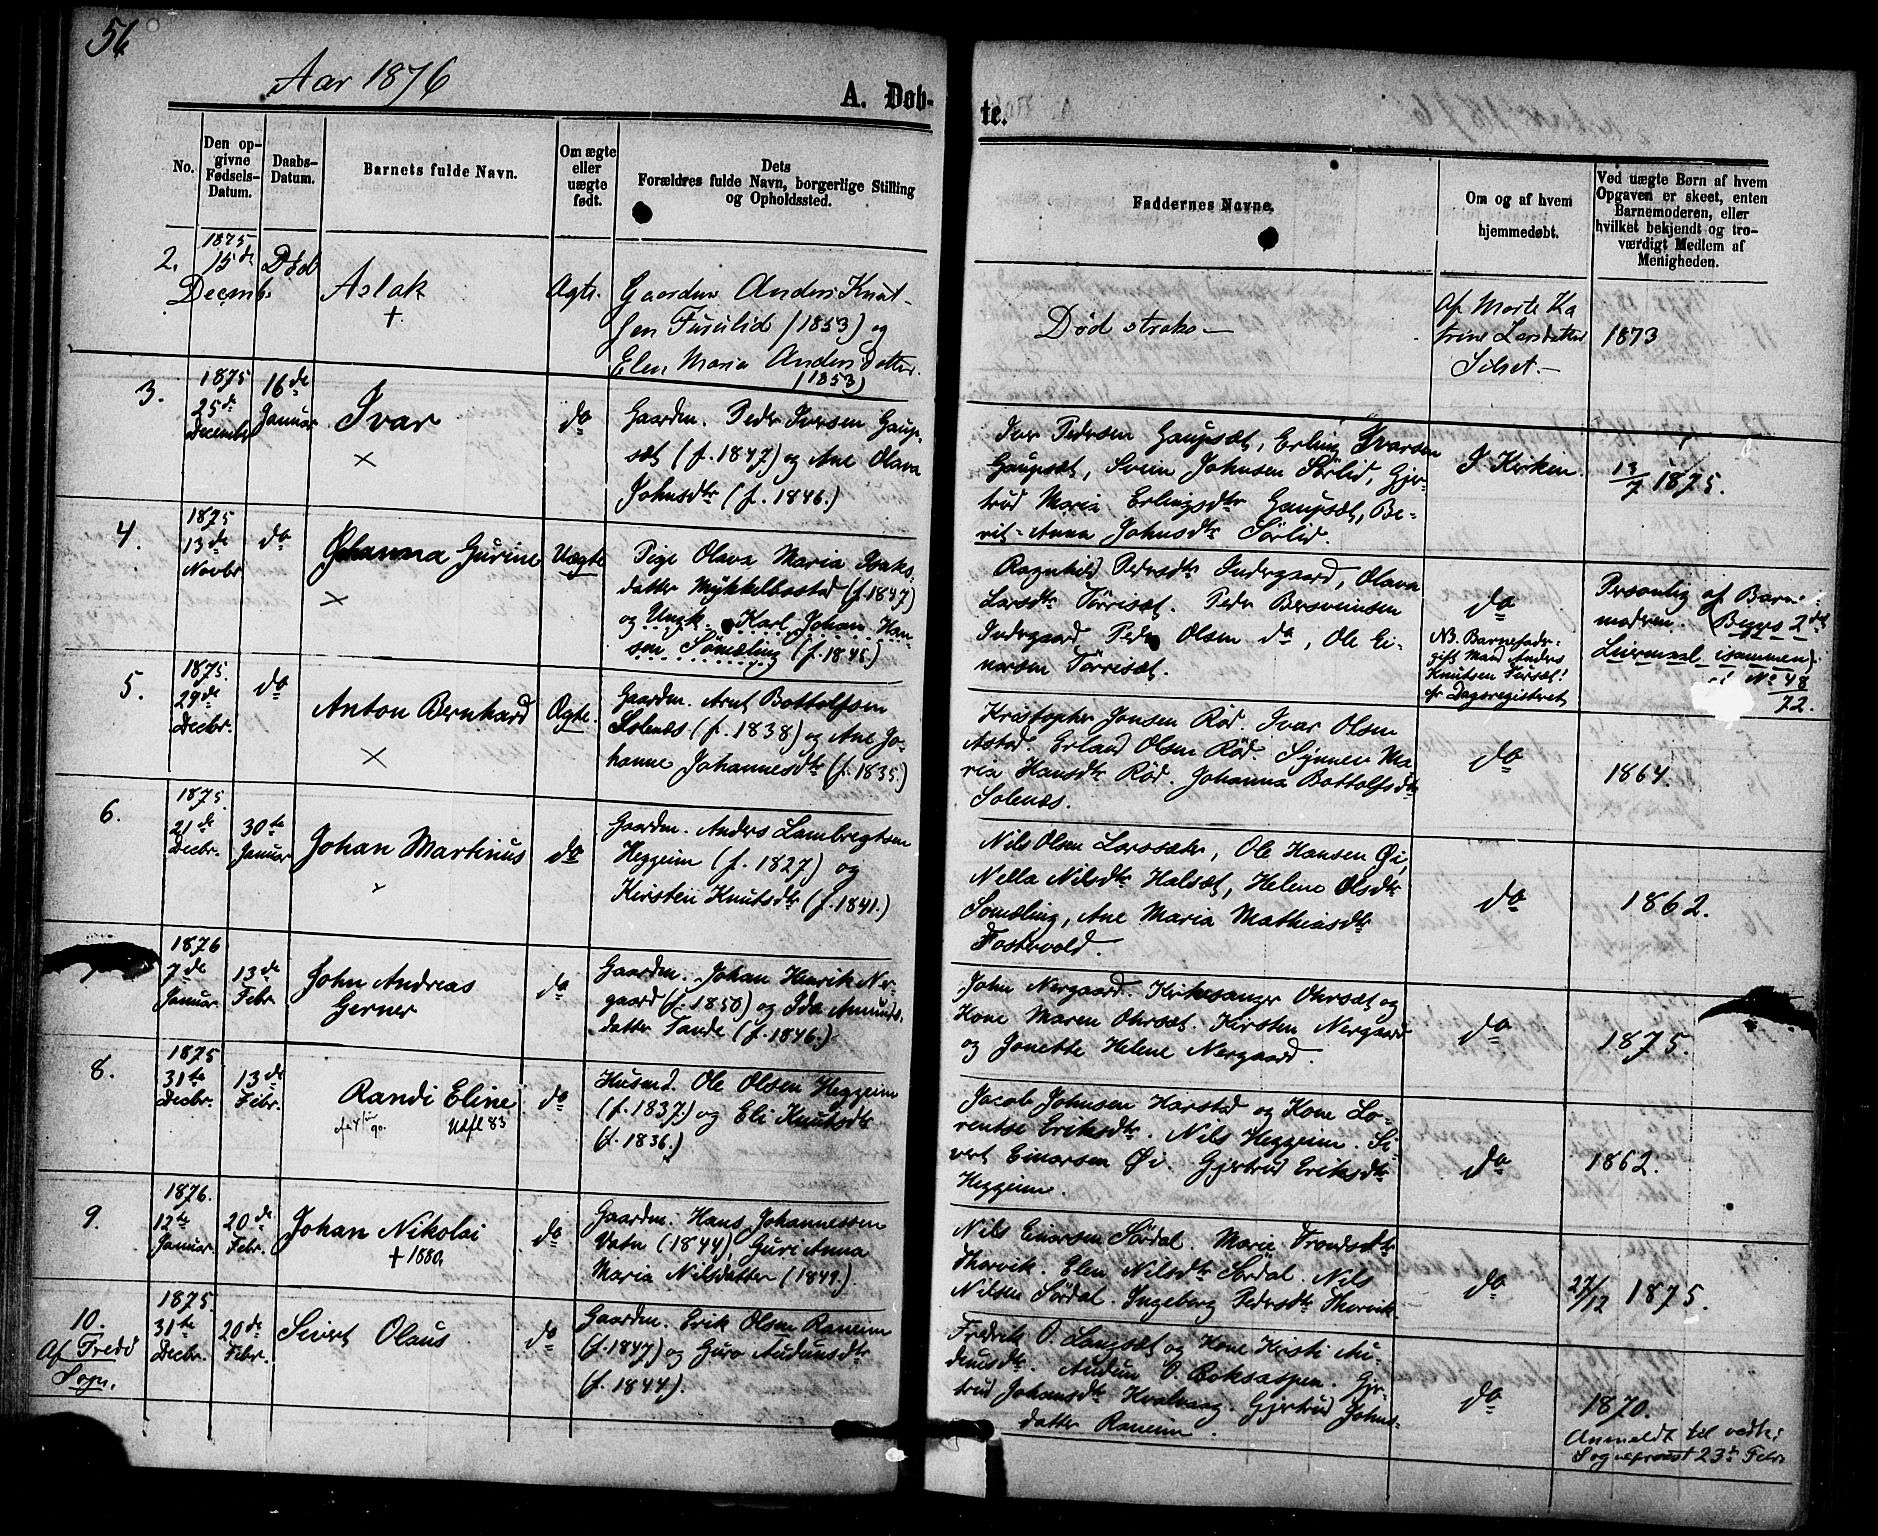 56
Aar 1876
A. Døb-
te.
No.
Den op-
givne
Fødsels-
Datum.
Daabs-
Datum.
Barnets fulde Navn.
Om ægte
eller
uægte
født.
Dets
Forældres fulde Navn, borgerlige Stilling
og Opholdssted.
Faddernes Navne.
Om og af hvem
hjemmedøbt.
Ved uægte Børn af hvem
Opgaven er skeet, enten
Barnemoderen, eller
hvilket bekjendt og tro-
værdigt Medlem af
Menigheden.
2.
1875
15de
Decmb.
Død
Aslak
+.
Ægte.
Gaardm Anders Knut-
sen Fursetlid (1853) og
Elen Maria Andersdatter.
(1853)
Død straks —
Af Marte Ka
trine Larsdatter
Silset. —
1873
3.
1875
25de
December
16de
Januar
Ivar
×
do
Gaardm. Peder Iversen Gaup-
sæt (f. 1847) og Ane Olava
Johnsdtr (f. 1846.)
Iver Pedersen Gaupsæt, Erling Ivarsen
Gaupsæt, Svein Johnsen Sørlid, Gjer-
trud Maria Erlingsdtr Gaupsæt, Be-
rit-Anna Johnsdtr Sørlid.
I Kirken.
13/7 1875.
4.
1875
13de
Novbr
do
Johanna Gurine
×
Uægte
Pige Olava Maria Isaks-
datter Mykkelbostad (f. 1847)
og Ungk. Karl Johan Han-
sen Sømæling (f. 1845.)
Ragnhild Pedersdtr Indergaard, Olava
Larsdtr Tørrisæt. Peder Bersveinsen
Indergaard Peder Olsen do, Ole Ei-
narsen Tørrisæt.
do
NB. Barnefader
gift Mand Anders
Knutsen Furset!
cfr Dagsregisteret
Personlig af Barne-
moderen. Begges 2det
Leiermaal isammen
No 48
72.
5.
1875.
29de
Decbr.
do
Anton Bernhard
×
Ægte.
Gaardm. Arnt Bottolfsen
Solenæs (f. 1838) og Ane Jo-
hanne Johannesdtr (f. 1835.)
Kristopher Jonsen Rød. Ivar Olsen
Astad. Erland Olsen Rød. Synnev Ma-
ria Hansdtr Rød. Johanna Bottolfsdtr
Solenæs.
do
1864.
6.
1875.
21de
Decbr.
30te
Januar
Johan Martinus
do
Gaardm. Anders Lambregtsen
Heggeim (f. 1827) og
Kirsten Knutsdtr (f. 1841.)
Nils Olsen Larssæter, Ole Hansen Øi,
Nella Nilsdtr Halsæt, Helene Olsdtr
Sømæling, Ane Maria Mathiasdtr
Fostervold.
do
1862.
1876
7de
Januar
13de
Febr.
John Andreas
Gerner
do
Gaardm. Johan Henrik Ner-
gaard (f. 1850) og Ida Amunds-
datter Tande (f. 1846.)
John Nergaard. Kirkesanger Ohrsæt og
Kone Maren Ohrsæt. Kirsten Nergaard
og Jonette Helene Nergaard.
do
1875.
8.
1875
31te
Decbr.
13de
Febr.
Randi Eline
Utfl 83
do
Husmd. Ole Olsen Heggeim
(f. 1837.) og Eli Knutsdtr
(f. 1836.)
Jacob Johnsen Harstad og Kone Lo-
rentse Eriksdtr. Nils Heggeim. Si-
vert Einarsen Øi. Gjertrud Eriksdtr
Heggeim.
do
1862.
9.
1876.
12te
Januar.
20de
Febr.
Johan Nikolai
+ 1880.
do
Gaardm. Hans Johannessen
Vatn (1844), Guri Anna
Maria Nilsdatter (1849.)
Nils Einarsen Sørdal. Marie Trondsdtr
Thorvik. Elen Nilsdtr Sørdal. Nils
Nilsen Sørdal. Ingeborg Pedersdtr Thorvik.
do
27/12 1875.
10.
Af Fredø
Sogn.
1875.
31te
Decbr.
20de
Febr.
Sivert Olaus
do
Gaardm. Erik Olsen Raneim
(f. 1847) og Guro Audunsdtr
(f. 1844).
Fredrik O. Langsæt og Kone Kristi Au-
dunsdtr. Audun O. Boksaspen. Gjer-
trud Johansdtr Kvalvaag. Gjertrud Johns-
datter Raneim.
do
1870.
Anmeldt til vedk:
Sogneprest 23de Febr